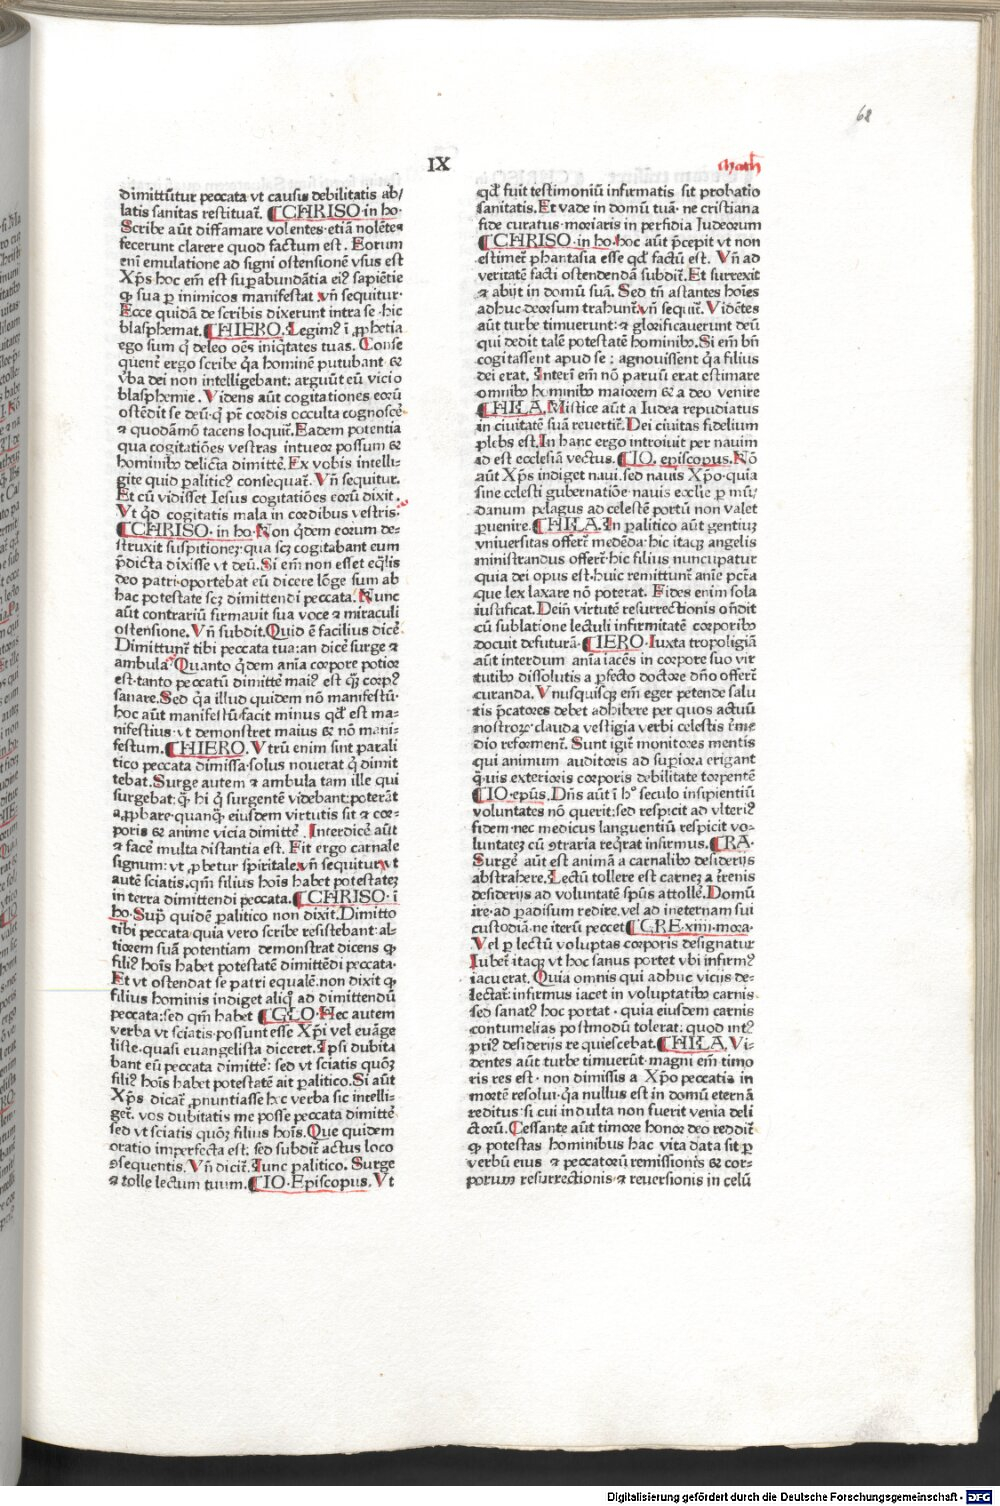 68
IX
Math
dimittūtur peccata vt causis debilitatis ab/
latis sanitas restituat̄. ¶CHRISO·in ho·
Scribe aūt diffamare volentes·etiā nolētes
fecerunt clarere quod factum est. Eorum
eni emulatione ad signi ostensionē vsus est
Xp̄s hoc em̄ est sup̄abundātia ei⁹ sapiētie
ꝙ sua p̄ inimicos manifestat vn̄ sequitur·
Ecce quidā de scribis dixerunt intra se·hic
blasphemat. ¶HIERO. Legim⁹ ī ꝓphetia
ego sum q̄ deleo oēs iniq̄tates tuas. Conse
quent̄ ergo scribe q̄a hominē putabant &
v̄ba dei non intelligebant: arguūt eū vicio
blasphemie. Videns aūt cogitationes eorū
ostēdit se deū·q̄ p̄t cordis occulta cognoscē
⁊ quodāmō tacens loquit̄. Eadem potentia
qua cogitatiōes vestras intueor possum &
hominibꝰ delicta dimitte. Ex vobis intelli-
gite quid palitic⁹ consequat̄. Vn̄ sequitur.
Et cū vidisset Iesus cogitatiōes eorū dixit.
Vt q̄d cogitatis mala in cordibus vestris.
¶CHRISO· in ho·Non q̄dem eorum de-
struxit suspitionez·qua scz cogitabant eum
p̄dicta dixisse vt deū. Si em̄ non esset eq̄lis
deo patri·oportebat eū dicere lōge sum ab
hac potestate scz dimittendi peccata. Nunc
aūt contrariū firmauit sua voce ⁊ miraculi
ostensione. Vn̄ subdit. Quid ē facilius dicē
Dimittunt̄ tibi peccata tua: an dicē surge ⁊
ambula? Quanto q̄dem aīa corpore potior
est·tanto peccatū dimittē mai⁹ est q̄ꝫ corp⁹
sanare. Sed q̄a illud quidem nō manifestū·
hoc aūt manifestū facit minus qd̄ est ma-
nifestius·vt demonstret maius & nō mani-
festum. ¶HIERO. Vtrū enim sint parali
tico peccata dimissa·solus nouerat q̄ dimit
tebat. Surge autem ⁊ ambula tam ille qui
surgebat: q̄ꝫ hi q̄ surgentē videbant: poterāt
a ꝓbare·quanq̄ꝫ eiusdem virtutis sit ⁊ cor-
poris & anime vicia dimittē. Interdicē aūt
⁊ facē multa distantia est. Fit ergo carnale
signum: vt ꝓbetur spiritale. vn̄ sequitur vt
autē sciatis·qm̄ filius hoīs habet potestatez
in terra dimittendi peccata. ¶CHRISO·ī
ho· Sup̄ quidē palitico non dixit. Dimitto
tibi peccata·quia vero scribe resistebant: al-
tiorem suā potentiam demonstrat dicens ꝙ
fili⁹ hoīs habet potestatē dimittēdi peccata·
Et vt ostendat se patri equalē. non dixit ꝙ
filius hominis indiget aliq̄ ad dimittendū
peccata: sed qm̄ habet ¶GLO· Hec autem
verba vt sciatis·possunt esse Xp̄i vel euāge
liste·quasi euangelista diceret. Ipsi dubita
bant eū peccata dimittē: sed vt sciatis quōꝫ
fili⁹ hoīs habet potestatē ait palitico. Si aūt
Xp̄s dicat̄ ꝓnuntiasse hec verba sic intelli-
get̄. vos dubitatis me posse peccata dimittē
sed vt sciatis quōꝫ filius hoīs. Que quidem
oratio imperfecta est. sed subdit̄ actus loco
ꝯsequentis. Vn̄ dicit̄. Tunc palitico. Surge
⁊ tolle lectum tuum. ¶IO· Episcopus. Vt
qd̄ fuit testimoniū infirmatis sit probatio
sanitatis. Et vade in domū tuā· ne cristiana
fide curatus·moriaris in perfidia Iudeorum
¶CHRISO·in ho. hoc aūt p̄cepit vt non
estimet̄ phantasia esse qd̄ factū est. Vn̄ ad
veritatē facti ostendendā subdit̄. Et surrexit
⁊ abijt in domū suā. Sed tn̄ astantes hoīes
adhuc deorsum trahunt̄. vn̄ sequit̄. Vidētes
aūt turbe timuerunt: ⁊ glorificauerunt deū
qui dedit talē potestatē hominibꝰ. Si em̄ bn̄
cogitassent apud se: agnouissent q̄a filius
dei erat. Interī em̄ nō paruū erat estimare
omnibꝰ hominibꝰ maiorem & a deo venire
¶HILA. Mistice aūt a Iudea repudiatus
in ciuitatē suā reuertit̄. Dei ciuitas fidelium
plebs est. In hanc ergo introiuit per nauim
id est ecclesiā vectus. ¶IO. episcopus. Nō
aūt Xp̄s indiget naui. sed nauis Xp̄o·quia
sine celesti gubernatiōe nauis ecclīe p mū-
danum pelagus ad celestē portū non valet
p̄uenire. ¶HILA. In palitico aūt gentiuꝫ
vniuersitas offert̄ medēda: hic itaqꝫ angelis
ministrandus offert̄·hic filius nuncupatur
quia dei opus est. huic remittunt̄ aīe pctā
que lex laxare nō poterat. Fides enim sola
iustificat. Dein̄ virtutē resurrectionis on̄dit
cū sublatione lectuli infirmitatē corporibꝰ
docuit defuturā· ¶IERO· Iuxta tropologiā
aūt interdum aīa iacēs in corpore suo vir
tutibꝰ dissolutis a p̄fecto doctore dn̄o offert̄
curanda. Vnusquisqꝫ em̄ eger petende salu
tis p̄catores debet adhibere per quos actuū
nostroꝝ clauda vestigia verbi celestis r̄me
dio reforment̄. Sunt igit̄ monitores mentis
qui animum auditoris ad sup̄iora erigant
q̄uis exterioris corporis debilitate torpentē
¶IO·ep̄us. Dn̄s aūt ī hꝰ seculo insipientiū
voluntates nō querit: sed respicit ad vlteri⁹
fidem·nec medicus languentiū respicit vo-
luntatez cū ꝯtraria req̄rat infirmus. ¶RA·
Surge aūt est animā a carnalibꝰ desiderijs
abstrahere. Lectū tollere est carnez a t̄renis
desiderijs ad voluntatē spūs attolle. Domū
ire·ad padisum redire. vel ad internam sui
custodiā·ne iterū peccet ¶GRE·xiiii·mora·
Vel p lectū voluptas corporis designatur
Iubet̄ itaqꝫ vt hoc sanus portet vbi infirm⁹
iacuerat. Quia omnis qui adhuc vicijs de-
lectat̄: infirmus iacet in voluptatibꝰ carnis.
sed sanat⁹ hoc portat·quia eiusdem carnis
contumelias postmodū tolerat: quod int⁹
p̄ri⁹ desiderijs requiescebat. ¶HILA. Vi-
dentes aūt turbe timuerūt·magni em̄ timo
ris res est·non dimissis a Xp̄o peccatis in
mortē resolui·q̄a nullus est in domū eternā
reditus: si cui indulta non fuerit venia deli
ctorū. Cessante aūt timore honor deo reddit̄
ꝙ potestas hominibus hac vita data sit p
verbū eius ⁊ peccatorū remissionis & cor-
porum resurrectionis·⁊ reuersionis in celū
Digitalisierung gefördert durch die Deutsche Forschungsgemeinschaft - DFG